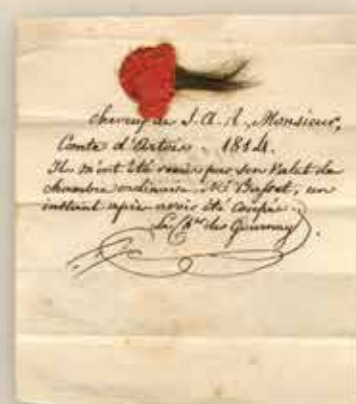 cheveux de S. A. R. Monsieur,
Comte d'Artois. 1814.
Ils m'ont été remis par son Valet de
chambre ordinaire, Mr Basset, un
instant après avoir été coupés.
Le Cher des Gournay